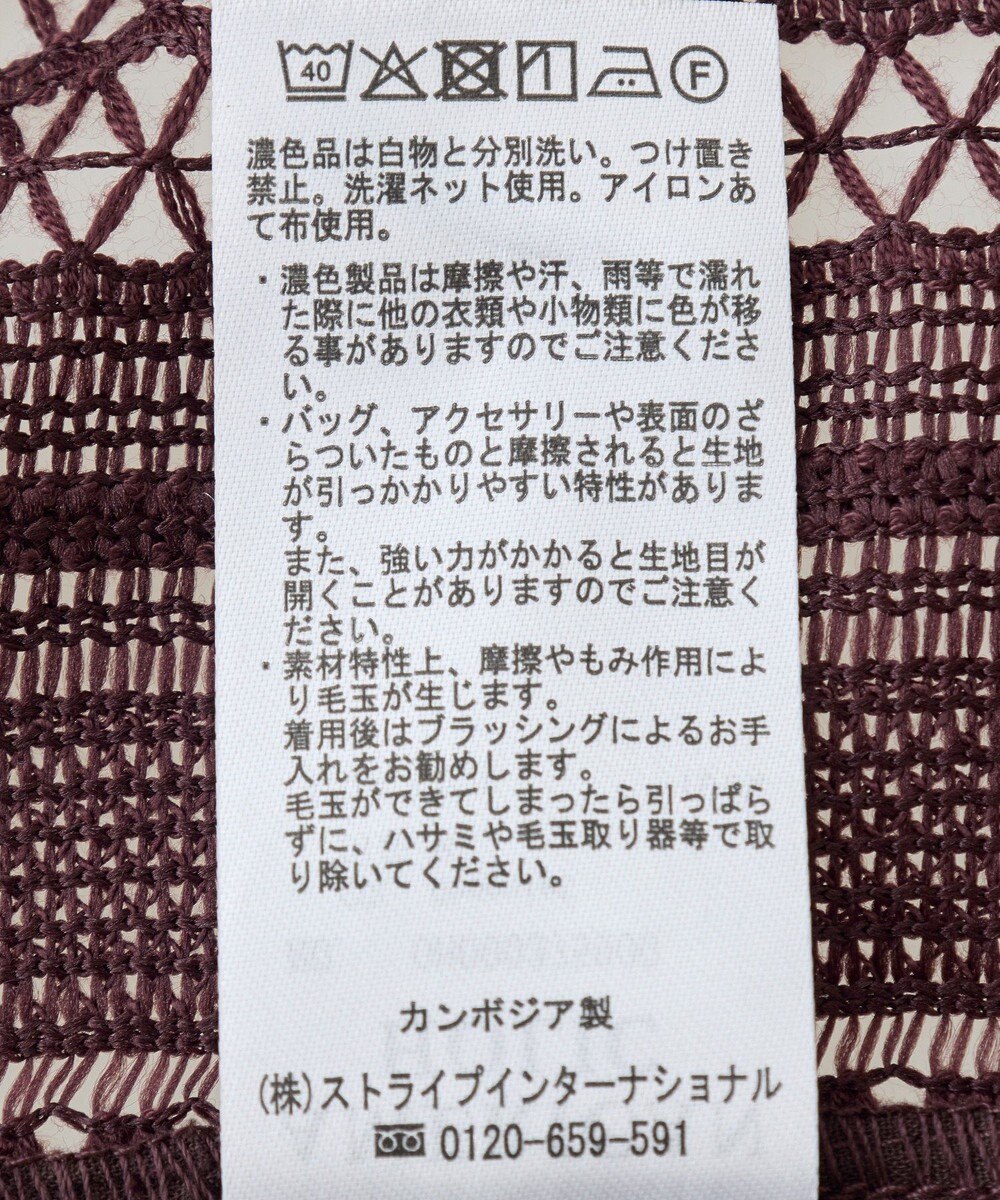 40
F
濃色品は白物と分別洗い。つけ置き
禁止。洗濯ネット使用。アイロンあ
て布使用。
・濃色製品は摩擦や汗、雨等で濡れ
た際に他の衣類や小物類に色が移
る事がありますのでご注意くださ
い。
・バッグ、アクセサリーや表面のざ
らついたものと摩擦されると生地
が引っかかりやすい特性がありま
す。
また、強い力がかかると生地目が
開くことがありますのでご注意く
ださい。
・素材特性上、摩擦やもみ作用によ
り毛玉が生じます。
着用後はブラッシングによるお手
入れをお勧めします。
毛玉ができてしまったら引っぱら
ずに、ハサミや毛玉取り器等で取
り除いてください。
カンボジア製
(株)ストライプインターナショナル
0120-659-591